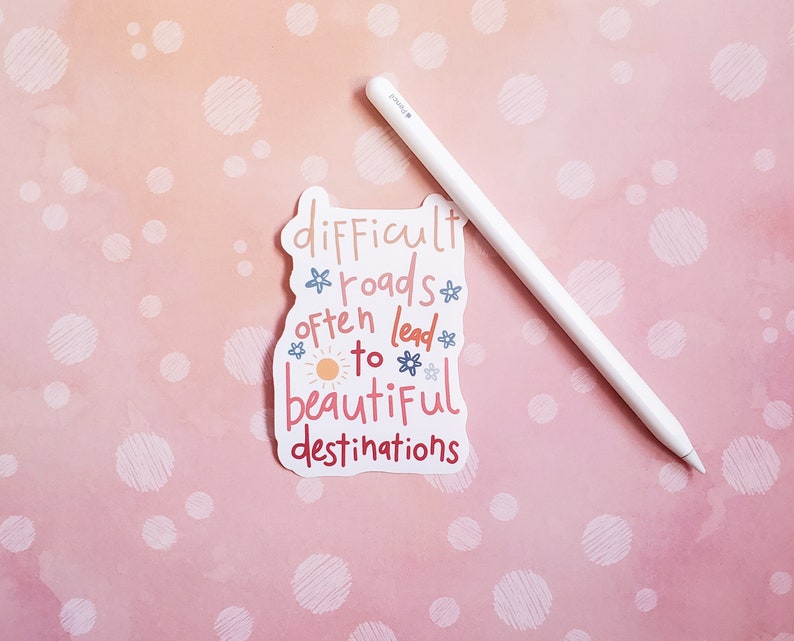 difficult
roads
often lead
to
beautiful
destinations
Pencil